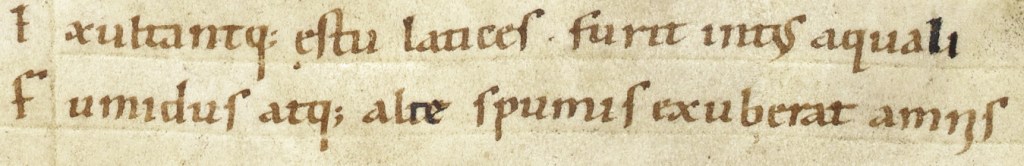 E xultantq; ęstu latices . furit intꝰ aquali
F umidus atq; alte spumis exuberat amnis